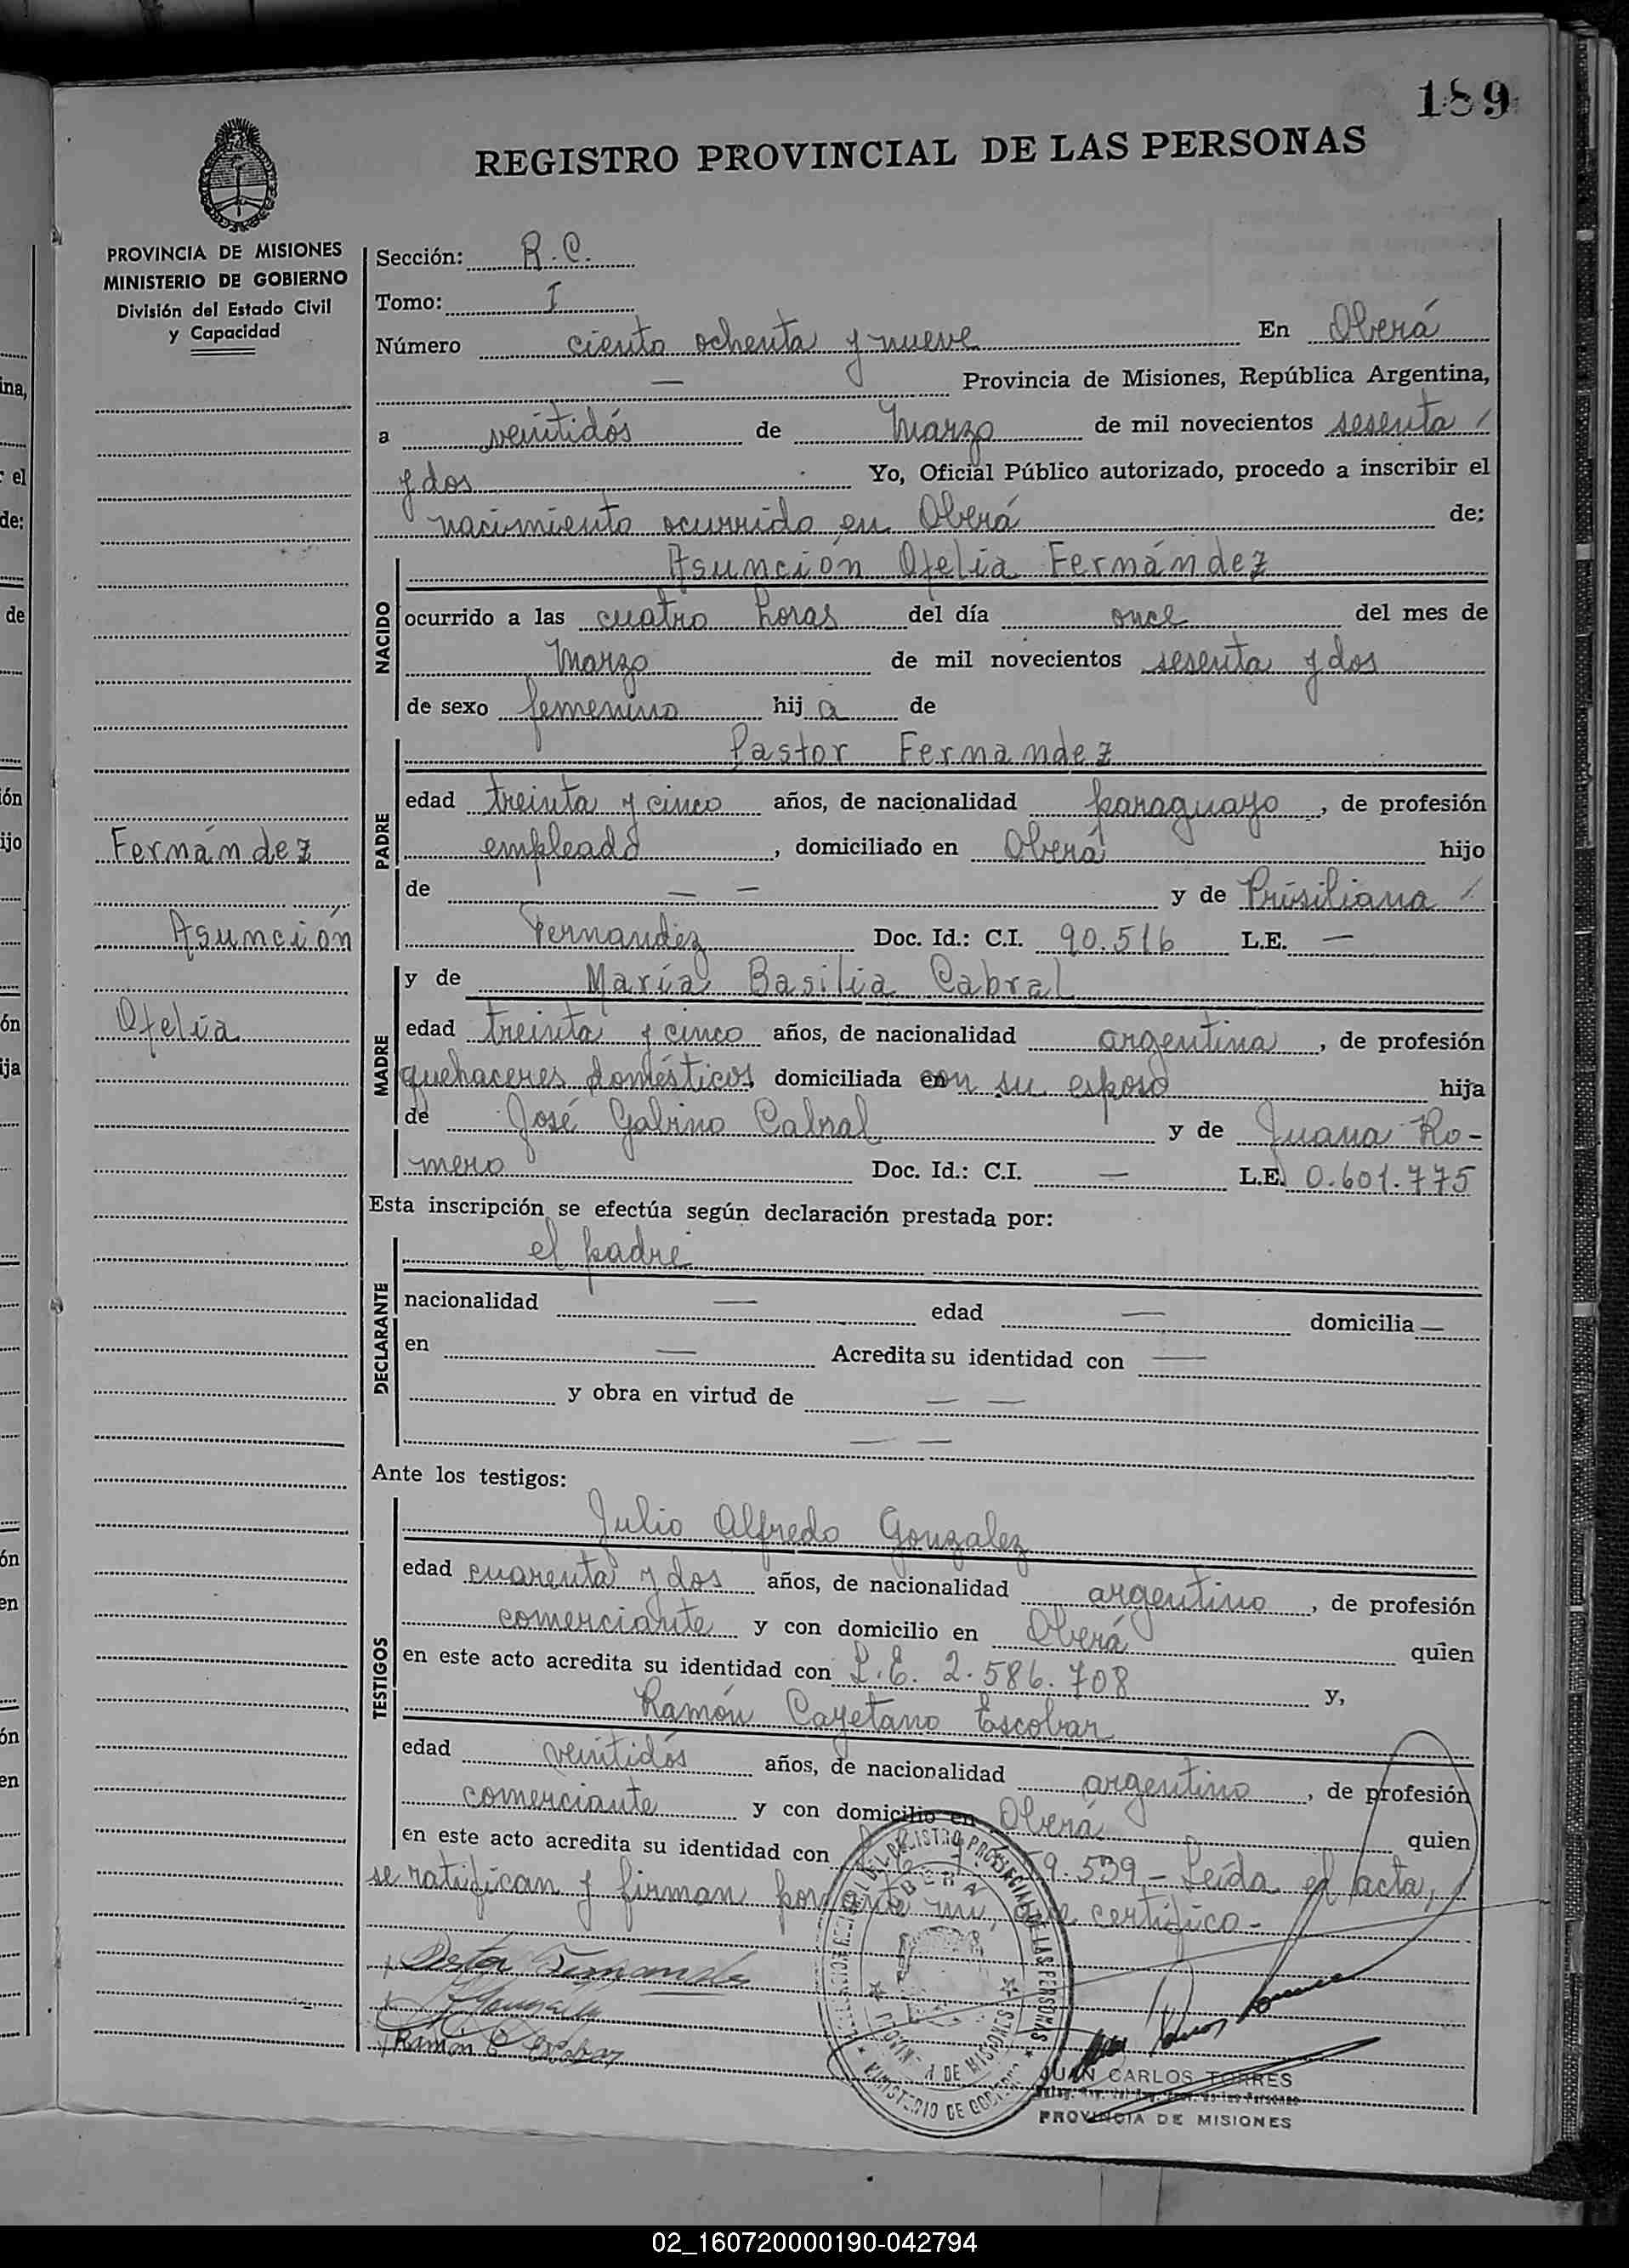 189
REGISTRO PROVINCIAL DE LAS PERSONAS
PROVINCIA DE MISIONES
MINISTERIO DE GOBIERNO
División del Estado Civil
y Capacidad
Fernández
Asunción
Ofelia
Sección: R.C.
Tomo: I
Número ciento ochenta y nueve En Oberá
— Provincia de Misiones, República Argentina,
a veintidós de Marzo de mil novecientos sesenta /
y dos Yo, Oficial Público autorizado, procedo a inscribir el
nacimiento ocurrido en Oberá de:
NACIDO
Asunción Ofelia Fernández
ocurrido a las cuatro horas del día once del mes de
Marzo de mil novecientos sesenta y dos
de sexo femenino hij a de
PADRE
Pastor Fernandez
edad treinta y cinco años, de nacionalidad paraguayo, de profesión
empleado, domiciliado en Oberá hijo
de — — y de Prisiliana /
Fernandez Doc. Id.: C.I. 90.516 L.E. —
MADRE
y de María Basilia Cabral
edad treinta y cinco años, de nacionalidad argentina, de profesión
quehaceres domésticos domiciliada en con su esposo hija
de José Gabino Cabral y de Juana Ro-
mero Doc. Id.: C.I. — L.E. 0.601.775
Esta inscripción se efectúa según declaración prestada por:
DECLARANTE
el padre
nacionalidad — edad — domicilia —
en — Acredita su identidad con —
y obra en virtud de — —
— —
Ante los testigos:
TESTIGOS
Julio Alfredo Gonzalez
edad cuarenta y dos años, de nacionalidad argentino, de profesión
comerciante y con domicilio en Oberá quien
en este acto acredita su identidad con L.E. 2.586.708 y,
Ramón Cayetano Escobar
edad veintidós años, de nacionalidad argentino, de profesión
comerciante y con domicilio en Oberá quien
en este acto acredita su identidad con 9.539 - Leída el acta,
se ratifican y firman por ante mí, que certifico-
Pastor Fernandez
Gonzalez
Ramón C Escobar
DEL REGISTRO PROVINCIAL DE LAS PERSONAS
OBERA
PROVINCIA DE MISIONES
MINISTERIO DE GOBIERNO
JUAN CARLOS TORRES
PROVINCIA DE MISIONES
ina,
r el
de:
de
ión
ijo
ón
ija
ón
en
ón
en
02_160720000190-042794